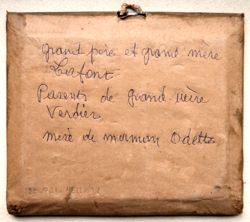 Grand père et grand mère
Lafont
Parents de grand mère
Verdier
mère de maman Odette